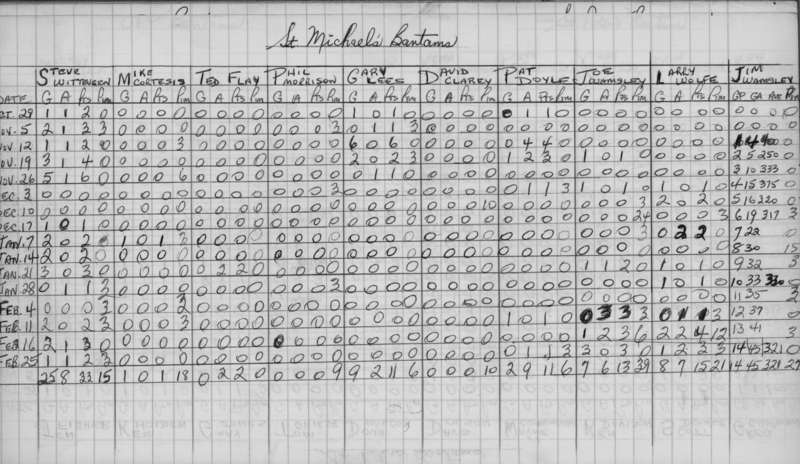 St Michael's Bantams
STEVE MIKE TED FLAY PHIL GARY DAVID PAT JOE LARRY JIM
CORTESIS MORRISON LEES CLAREY DOYLE WAMSLEY WOLFE WAMSLEY
DATE G A Pts Pim G A Pts Pim G A Pts Pim G A Pts Pim G A Pts Pim G A Pts Pim G A Pts Pim G A Pts Pim G A Pts Pim GP GA Ave Pim
1 1 2 0 0 0 0 0 0 0 0 0 0 0 0 0 1 0 1 0 0 0 0 0 0 1 1 0 0 0 0 0 0 0 0 0 0 0 0 0
NOV. 5 2 1 3 3 0 0 0 0 0 0 0 0 0 0 0 3 0 1 1 3 0 0 0 0 0 0 0 0 0 0 0 0 0 0 0 0 0 0 0 0
NOV. 12 1 1 2 0 0 0 0 3 0 0 0 0 0 0 0 0 6 0 6 0 0 0 0 0 0 4 4 0 0 0 0 0 0 0 0 0
NOV. 19 3 1 4 0 0 0 0 0 0 0 0 0 0 0 0 0 2 0 2 3 0 0 0 0 1 2 3 0 1 0 1 0 0 0 0 0 2 5 250 0
NOV. 26 5 1 6 0 0 0 0 6 0 0 0 0 0 0 0 0 0 1 1 0 0 0 0 0 0 0 0 0 0 0 0 0 0 0 0 0 3 10 333 0
DEC. 3 0 0 0 0 0 0 0 0 0 0 0 0 0 0 0 3 0 0 0 0 0 0 0 0 0 1 1 3 1 0 1 0 1 0 1 0 4 15 375 0
DEC. 10 0 0 0 0 0 0 0 0 0 0 0 0 0 0 0 0 0 0 0 0 0 0 0 10 0 0 0 0 0 0 0 3 2 0 2 0 5 16 320 0
DEC. 17 1 0 1 0 0 0 0 0 0 0 0 0 0 0 0 0 0 0 0 0 0 0 0 0 0 0 0 0 0 0 0 24 0 0 0 3 6 19 317 3
JAN. 7 2 0 2 0 1 0 1 3 0 0 0 0 0 0 0 0 0 0 0 0 0 0 0 0 0 0 0 0 0 0 0 3 0 2 2 0 7 22
JAN. 14 2 0 2 0 0 0 0 0 0 0 0 0 0 0 0 0 0 0 0 0 0 0 0 0 0 0 0 0 0 0 0 0 0 0 0 0 8 30 15
JAN. 21 3 0 3 0 0 0 0 0 0 2 2 0 0 0 0 0 0 0 0 0 0 0 0 0 0 0 0 0 1 1 2 0 1 0 1 0 9 32 3
JAN 28 0 1 1 3 0 0 0 0 0 0 0 0 0 0 0 3 0 0 0 0 0 0 0 0 0 0 0 0 0 0 0 0 1 0 1 0 10 33 330 0
FEB. 4 0 0 0 3 0 0 0 3 0 0 0 0 0 0 0 0 0 0 0 0 0 0 0 0 0 0 0 0 0 0 0 0 11 35
FEB. 11 2 0 2 3 0 0 0 3 0 0 0 0 0 0 0 0 0 0 0 0 0 0 0 0 1 0 1 0 0 3 3 3 0 1 1 3 12 37 0
FEB. 16 2 1 3 0 0 0 0 0 0 0 0 0 0 0 0 0 0 0 0 0 0 0 0 0 0 0 0 0 1 2 3 6 2 2 4 12 13 41 3
FEB. 25 1 1 2 3 0 0 0 0 0 0 0 0 0 0 0 0 0 0 0 0 0 0 0 0 0 1 1 3 3 0 3 0 1 2 3 3 14 45 321 0
25 8 33 15 1 0 1 18 0 2 2 0 0 0 0 9 9 2 11 6 0 0 0 10 2 9 11 6 7 6 13 39 8 7 15 21 14 45 321 27